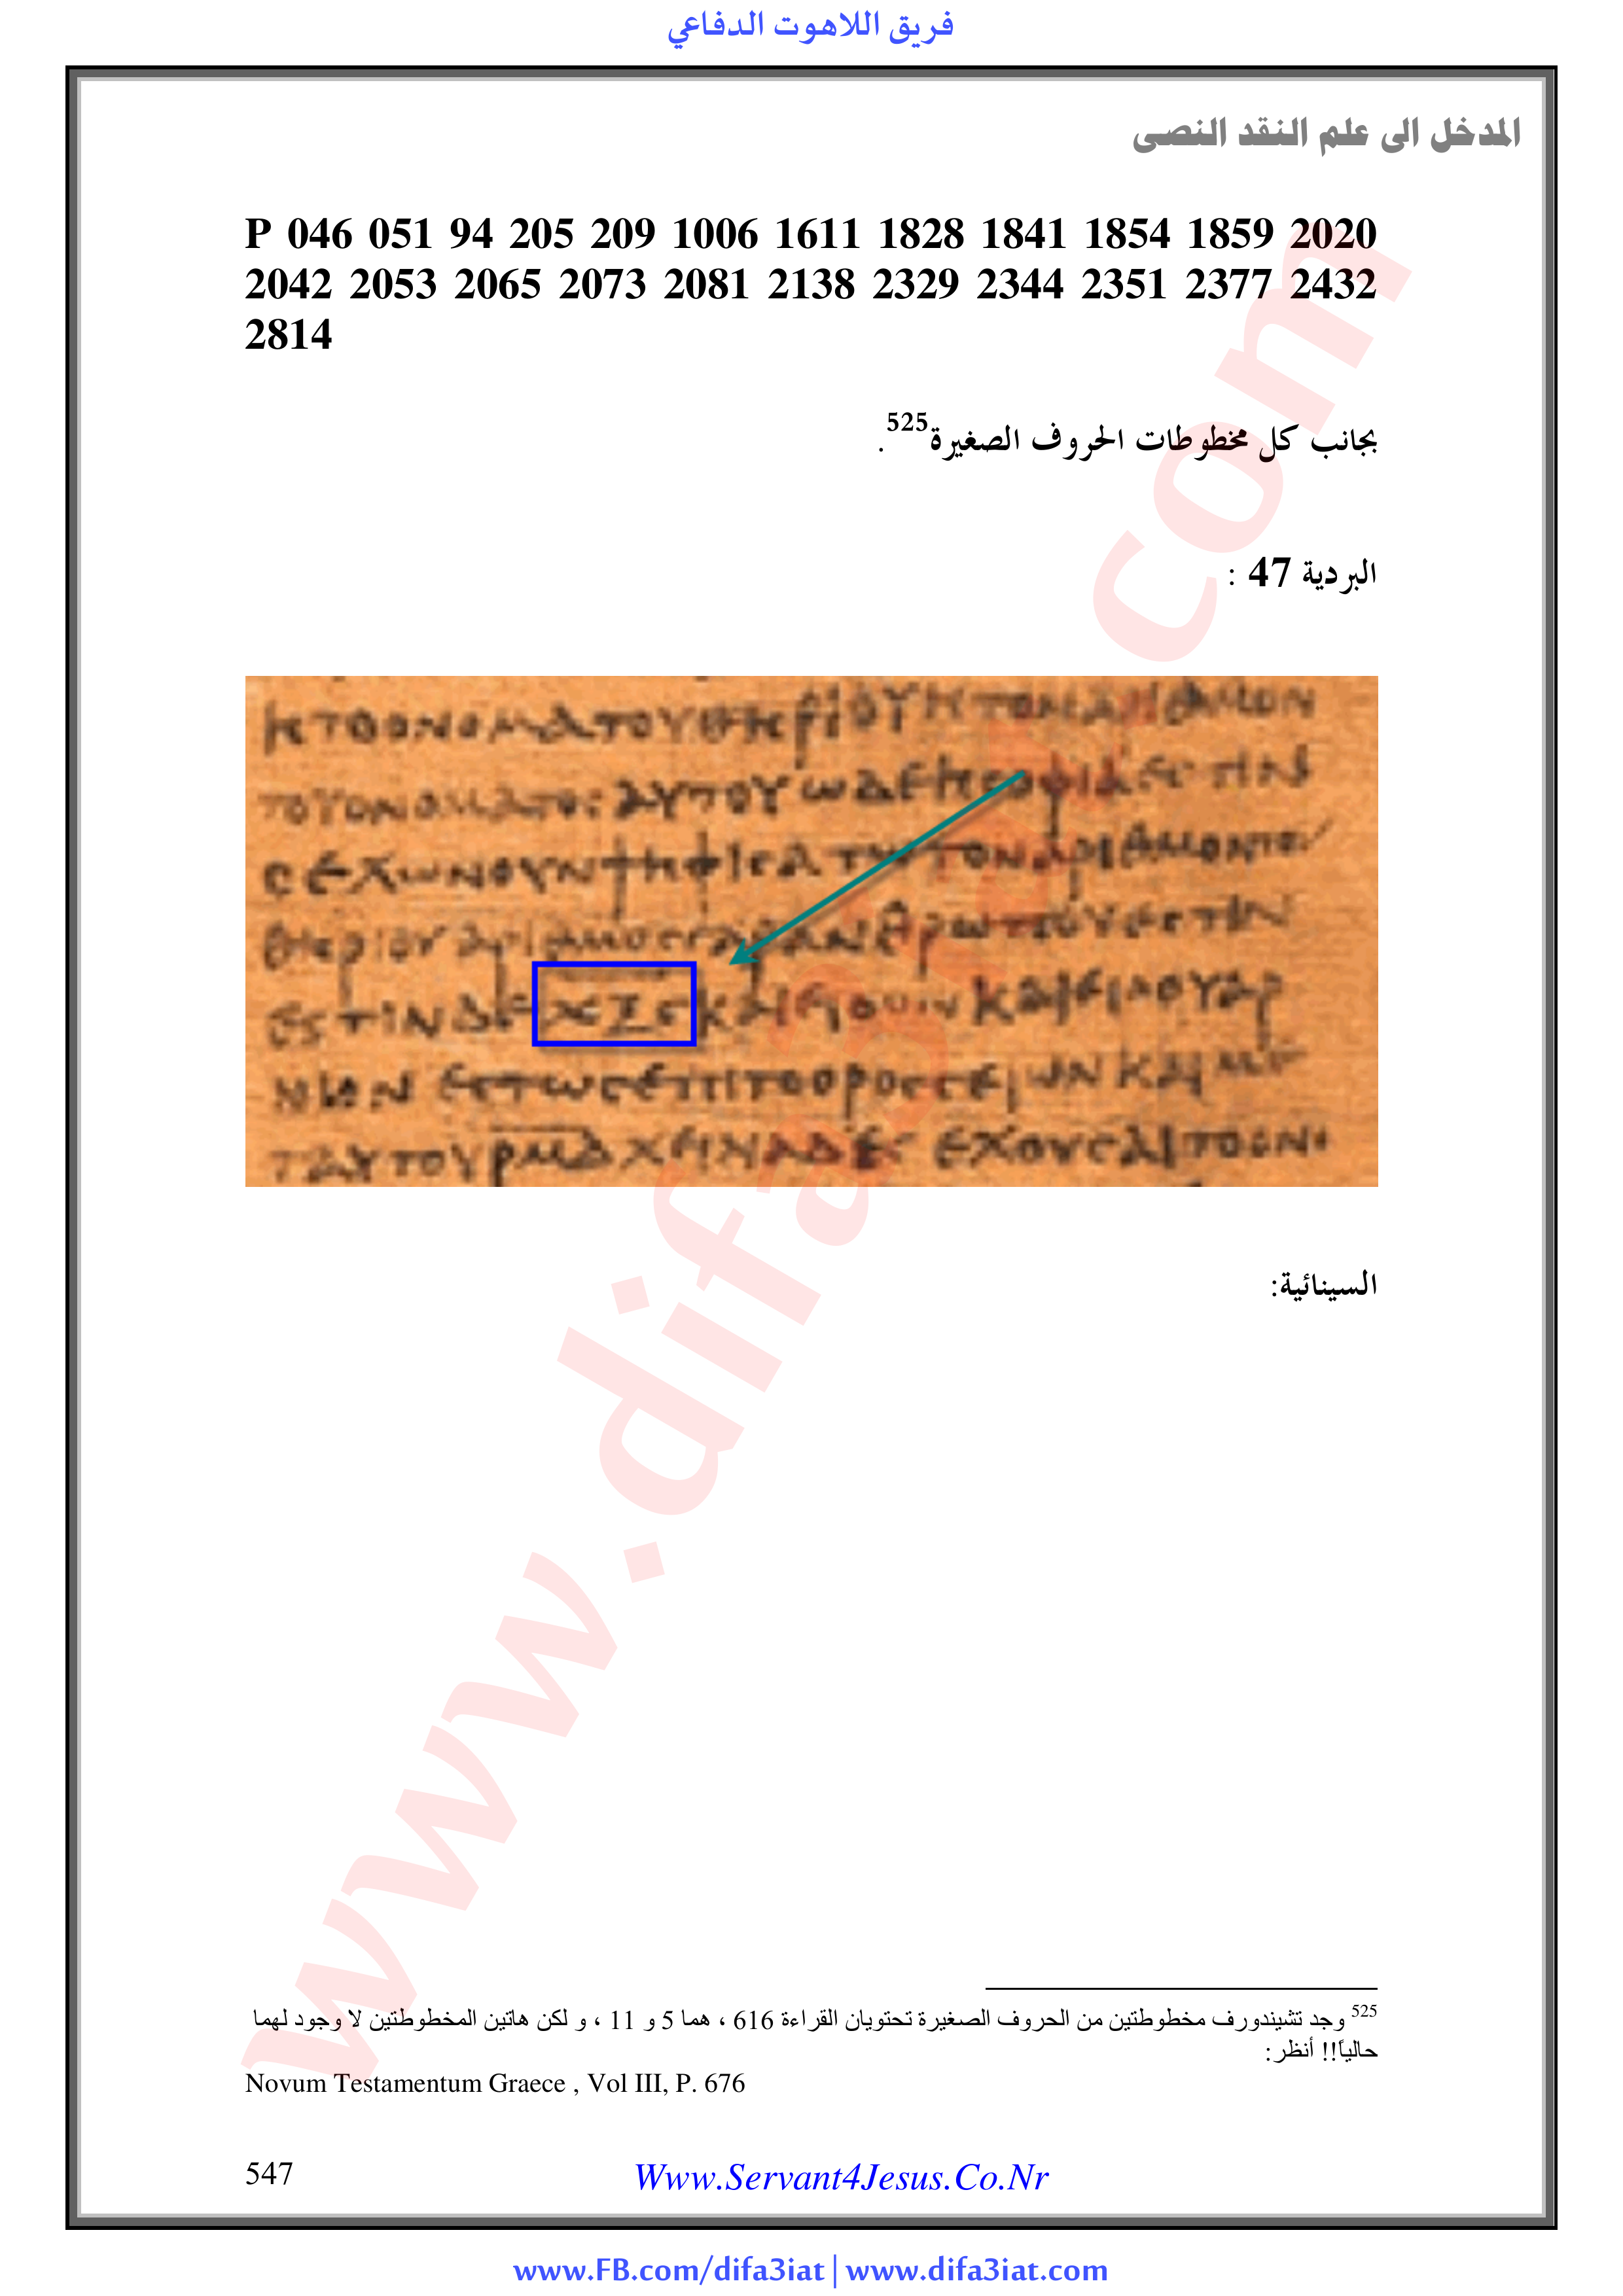 فريق اللاهوت الدفاعي
المدخل الى علم النقد النصى
P 046 051 94 205 209 1006 1611 1828 1841 1854 1859 2020
2042 2053 2065 2073 2081 2138 2329 2344 2351 2377 2432
2814
بجانب كل مخطوطات الحروف الصغيرة525.
البردية 47 :
ΤΟΥΟΝΟΜΑΤΟΣ ΑΥΤΟΥ ΩΔΕ
ΕΣΤΙΝ ΔΕ ΧΞϚ ΚΑΙ
السينائية:
525 وجد تشيندورف مخطوطتين من الحروف الصغيرة تحتويان القراءة 616 ، هما 5 و 11 ، و لكن هاتين المخطوطتين لا وجود لهما
حالياً!! أنظر:
Novum Testamentum Graece , Vol III, P. 676
547
Www.Servant4Jesus.Co.Nr
www.FB.com/difa3iat | www.difa3iat.com
www.difa3iat.com